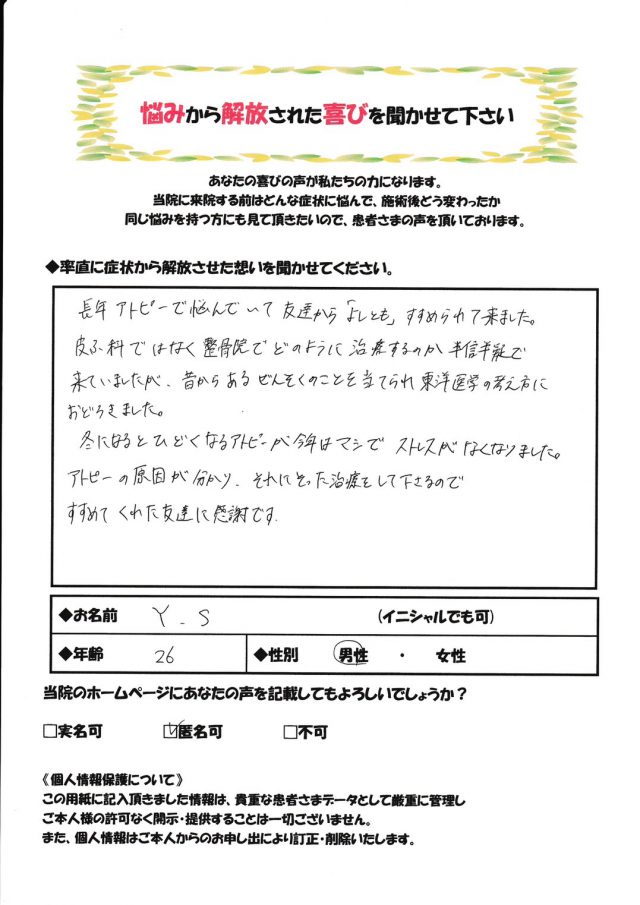 悩みから解放された喜びを聞かせて下さい
あなたの喜びの声が私たちの力になります。
当院に来院する前はどんな症状に悩んで、施術後どう変わったか
同じ悩みを持つ方にも見て頂きたいので、患者さまの声を頂いております。
◆率直に症状から解放させた想いを聞かせてください。
長年アトピーで悩んでいて友達から「よしとも」すすめられて来ました。
皮ふ科ではなく整骨院でどのように治療するのか半信半疑で
来ていましたが、昔からあるぜんそくのことを当てられ東洋医学の考え方に
おどろきました。
冬になるとひどくなるアトピーが今年はマシでストレスがなくなりました。
アトピーの原因が分かり、それにそった治療をして下さるので
すすめてくれた友達に感謝です.
◆お名前 Y.S (イニシャルでも可)
◆年齢 26 ◆性別 男性 ・ 女性
当院のホームページにあなたの声を記載してもよろしいでしょうか？
□実名可 ☑匿名可 □不可
《個人情報保護について》
この用紙に記入頂きました情報は、貴重な患者さまデータとして厳重に管理し
ご本人様の許可なく開示・提供することは一切ございません。
また、個人情報はご本人からのお申し出により訂正・削除いたします。